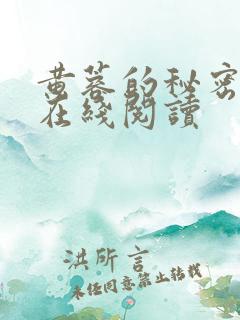 黄蓉的秘密
在綫閱讀
洪所言
未经同意禁止转载